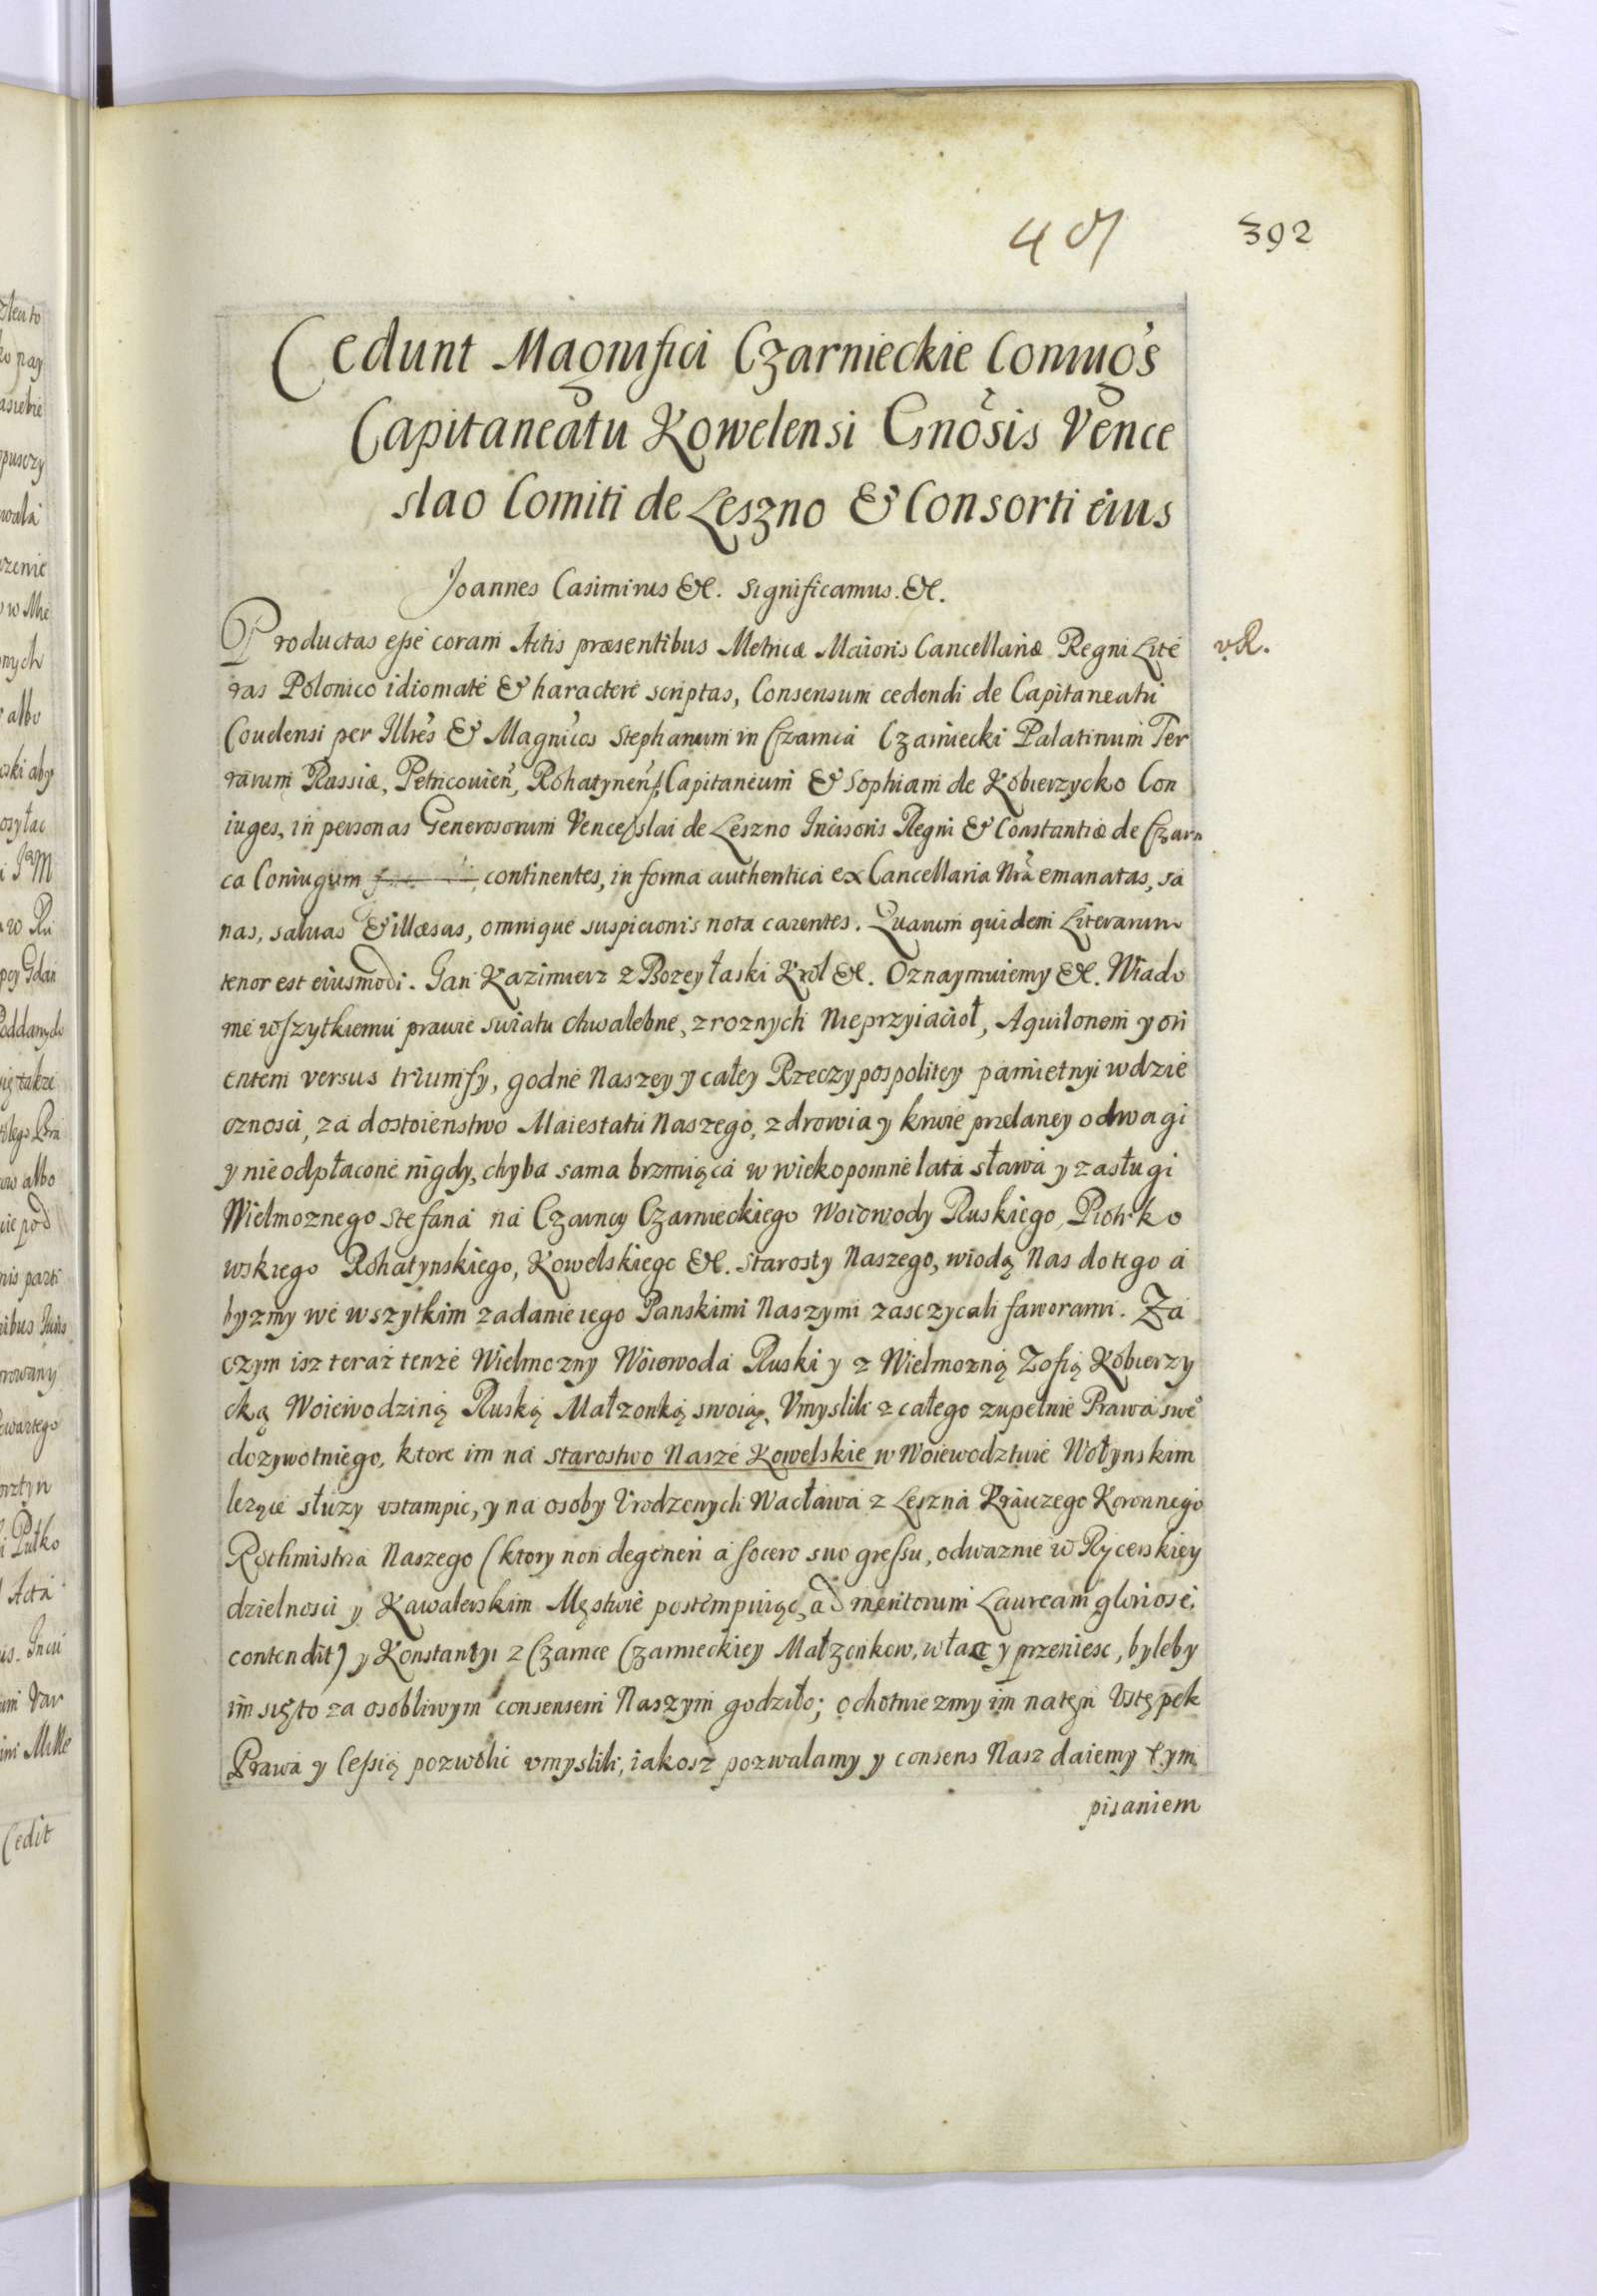 407 392
Cedunt Magnifici Czarnieckie Coniug̃s
Capitaneatu Kowelensi Gnõsis Vence
slao Comiti de Leszno & Consorti eius
Joannes Casimirus &c. Significamus. &c.
Productas esse coram Actis præsentibus Metricæ Maioris Cancellariæ Regni Lite
vR.
ras Polonico idiomate & haractere scriptas, Consensum cedendi de Capitaneatu
Couelensi per Illres & Magnicos Stephanum in Czarnca Czarniecki Palatinum Ter
rarum Russiæ, Petricouien, Rohatynen, Capitaneum & Sophiam de Kobierzycko Con
iuges, in personas Generosorum Venceslai de Leszno Incisoris Regni & Constantiæ de Czarn
ca Coniugum continentes, in forma authentica ex Cancellaria Nrã emanatas, sa
nas, saluas & illæsas, omnique suspicionis nota carentes. Quarum quidem Literarum
tenor est eiusmodi. Jan Kazimierz z Bozey łaski Krol &c. Oznaymuiemy &c. Wiado
me wszytkiemu prawie swiatu chwalebne, z roznych Nieprzyiacioł, Aquilonem y ori
entem versus triumfy, godne Naszey y całey Rzeczypospolitey pamietnyi wdzie
cznosci, za dostoienstwo Maiestatu Naszego, zdrowia y krwie przelaney odwagi
y nieodpłacone nigdy, chyba sama brzmiąca w wiekopomne lata sława y zasługi
Wielmoznego Stefana na Czarncy Czarnieckiego Woiewody Ruskiego, Piotrko
wskiego Rohatynskiego, Kowelskiego &c. Starosty Naszego, wiodą Nas do tego a
byzmy we wszytkim zadanie iego Panskimi Naszymi zasczycali faworami. Za
czym isz teraz tenze Wielmozny Woiewoda Ruski y z Wielmozną Zofią Kobierzy
cką Woiewodziną Ruską Małzonką swoią, Vmyslili z całego zupełnie Prawa swe°
dozywotniego, ktore im na starostwo Nasze Kowelskie w Woiewodztwie Wołynskim
lezące słuzy vstampic, y na osoby Vrodzonych Wacława z Leszna Krayczego Koronnego
Rothmistrza Naszego (ktory non degeneri a socero suo gressu, odwaznie w Rycerskiey
dzielnosci y Kawalerskim Męstwie postempuiąc, ad meritorum Lauream gloriose
contendit) y Konstantyi z Czarnce Czarnieckiey Małzonkow, wlac y przeniesc, byleby
im się to za osobliwym consensem Naszym godziło; ochotnie zmy im na ten Vstępek
Prawa y Cessią pozwolic vmyslili, iakosz pozwalamy y consens Nasz daiemy tym
pisaniem